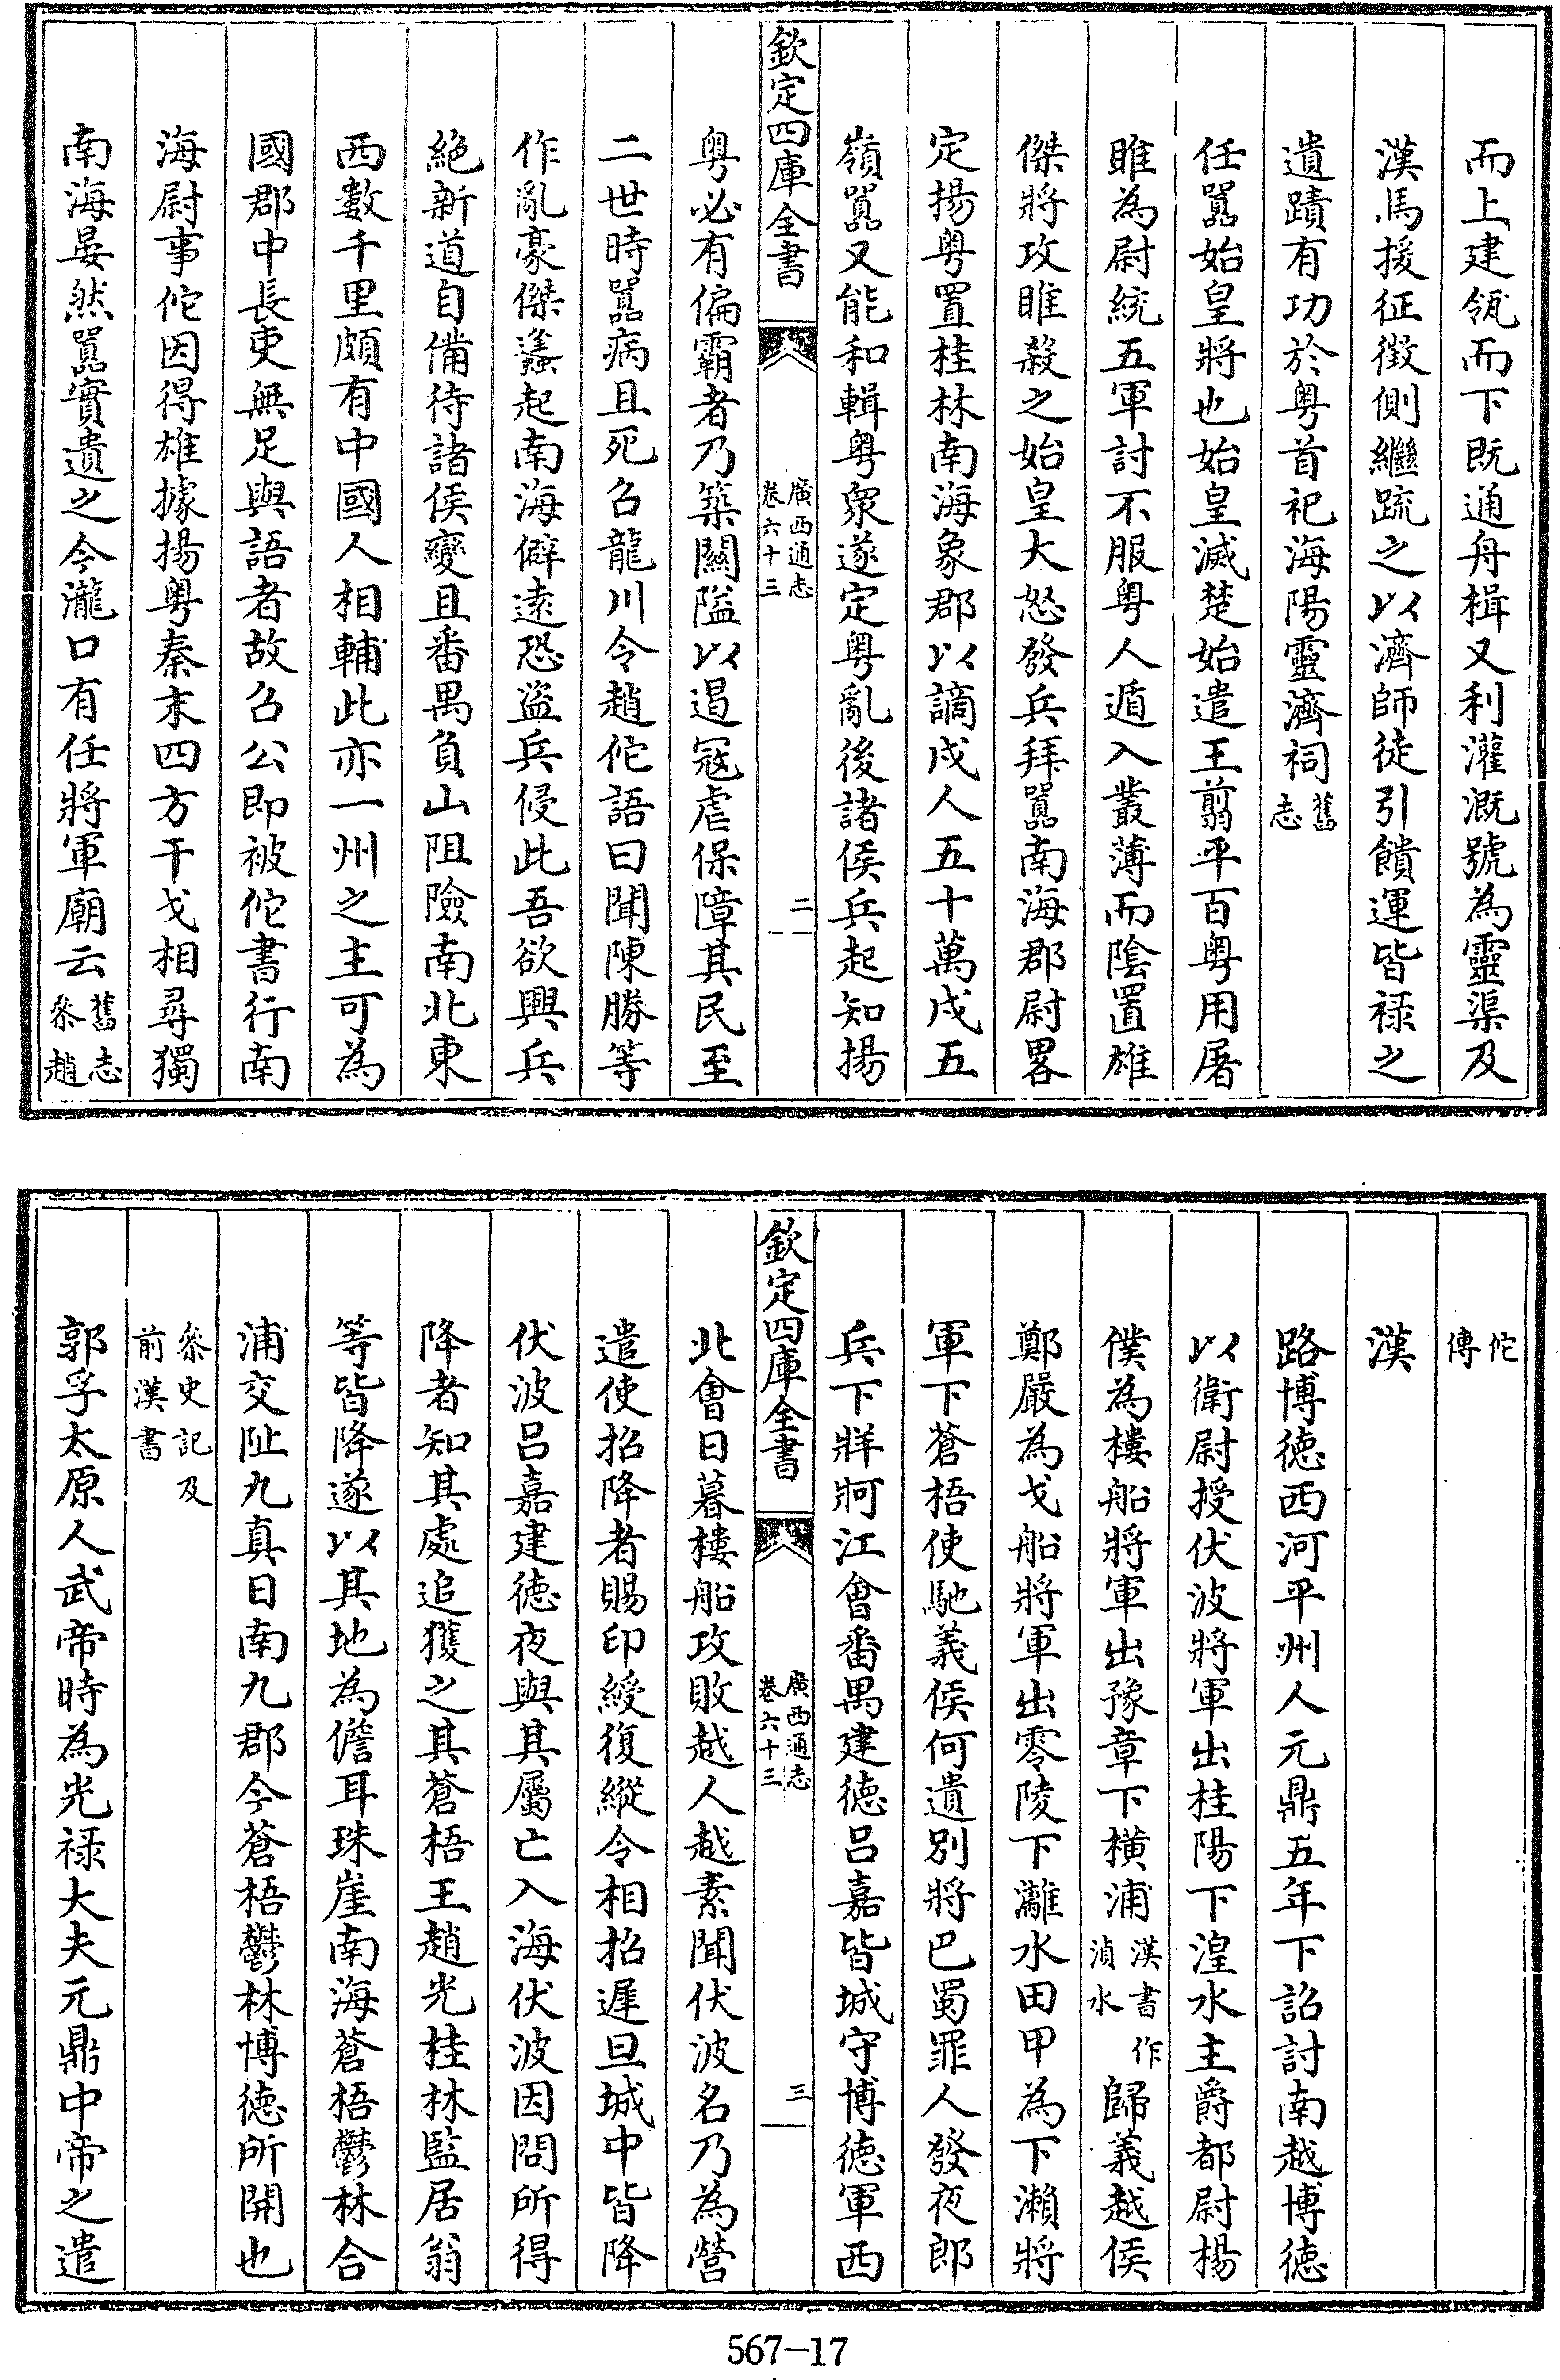 而上建瓴而下既通舟楫又利灌溉號為靈渠及
漢馬援征徴側繼疏之以濟師徒引饋運皆禄之
遺蹟有功於粤首祀海陽靈濟祠舊志
任嚚始皇將也始皇滅楚始遣王翦平百粤用屠
睢為尉統五軍討不服粤人遁入叢薄而陰置雄
傑將攻睢殺之始皇大怒發兵拜嚚南海郡尉畧
定揚粤置桂林南海象郡以謫戍人五十萬戍五
嶺嚚又能和輯粤衆遂定粤亂後諸侯兵起知揚
欽定四庫全書 廣西通志 卷六十三 二
粤必有偏霸者乃築關隘以遏寇虐保障其民至
二世時嚚病且死召龍川令趙佗語曰聞陳勝等
作亂豪傑蠭起南海僻遠恐盗兵侵此吾欲興兵
絶新道自備待諸侯變且番禺負山阻險南北東
西數千里頗有中國人相輔此亦一州之主可為
國郡中長吏無足與語者故召公即被佗書行南
海尉事佗因得雄據揚粤秦末四方干戈相尋獨
南海晏然嚚實遺之今瀧口有任將軍廟云舊志叅趙
佗傳
漢
路博徳西河平州人元鼎五年下詔討南越博徳
以衛尉授伏波將軍出桂陽下湟水主爵都尉楊
僕為樓船將軍出豫章下横浦漢書作湞水歸義越侯
鄭嚴為戈船將軍出零陵下灕水田甲為下瀨將
軍下蒼梧使馳義侯何遺别將巴蜀罪人發夜郎
兵下牂牁江會番禺建徳吕嘉皆城守博徳軍西
欽定四庫全書 廣西通志 卷六十三 三
北會日暮樓船攻敗越人越素聞伏波名乃為營
遣使招降者賜印綬復縱令相招遲旦城中皆降
伏波吕嘉建徳夜與其屬亡入海伏波因問所得
降者知其處追獲之其蒼梧王趙光桂林監居翁
等皆降遂以其地為儋耳珠崖南海蒼梧鬱林合
浦交阯九真日南九郡今蒼梧鬱林博徳所開也
叅史記及前漢書
郭孚太原人武帝時為光禄大夫元鼎中帝之遣
567-17